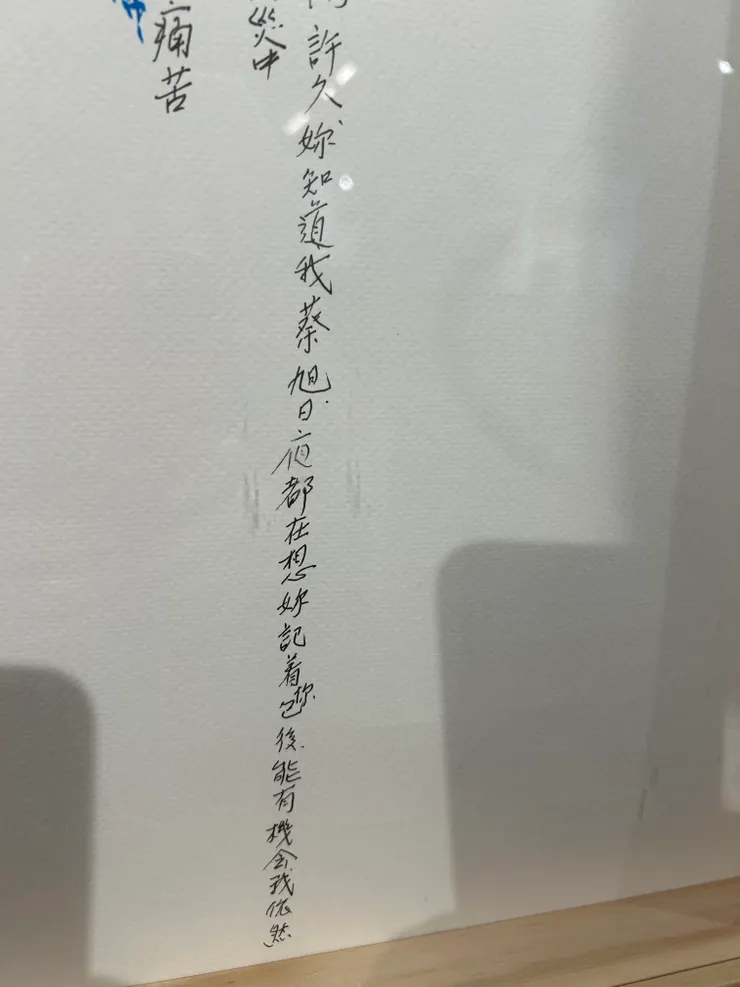 許久妳知道我蔡旭日夜都在想妳記着你已後能有機會我依然
災中
痛苦